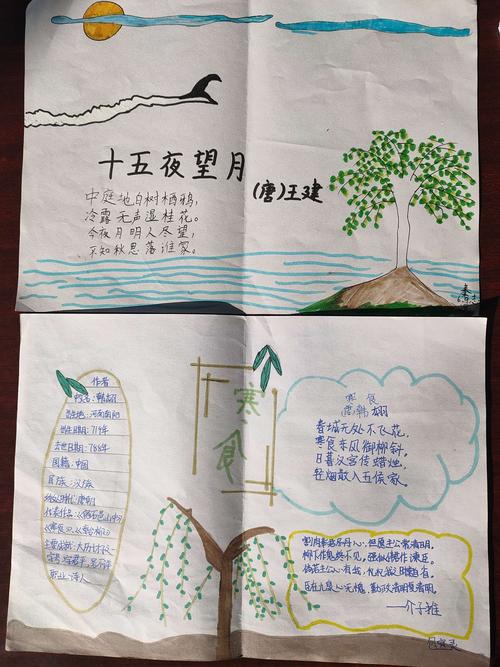 十五夜望月
(唐)王建
中庭地白树栖鸦，
冷露无声湿桂花。
今夜月明人尽望，
不知秋思落谁家。
寒食
作者
姓名：韩翃
出生地：河南南阳
出生日期：719年
去世日期：788年
国籍：中国
民族：汉族
所处时代：唐朝
职业：诗人
寒食
(唐)韩翃
春城无处不飞花，
寒食东风御柳斜，
日暮汉宫传蜡烛，
轻烟散入五侯家。
割肉奉君尽丹心，但愿主公常清明。
柳下作鬼终不见，强似伴君作谏臣。
倘若主公心有我，忆我之时常自省。
臣在九泉心无愧，勤政清明复清明。
——介子推